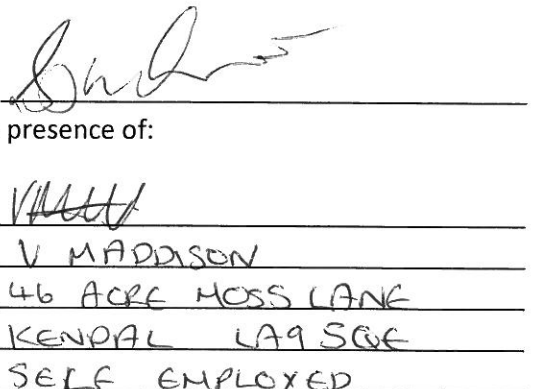 presence of:
V MADDISON
46 ACRE MOSS LANE
KENDAL LA9 5QE
SELF EMPLOYED